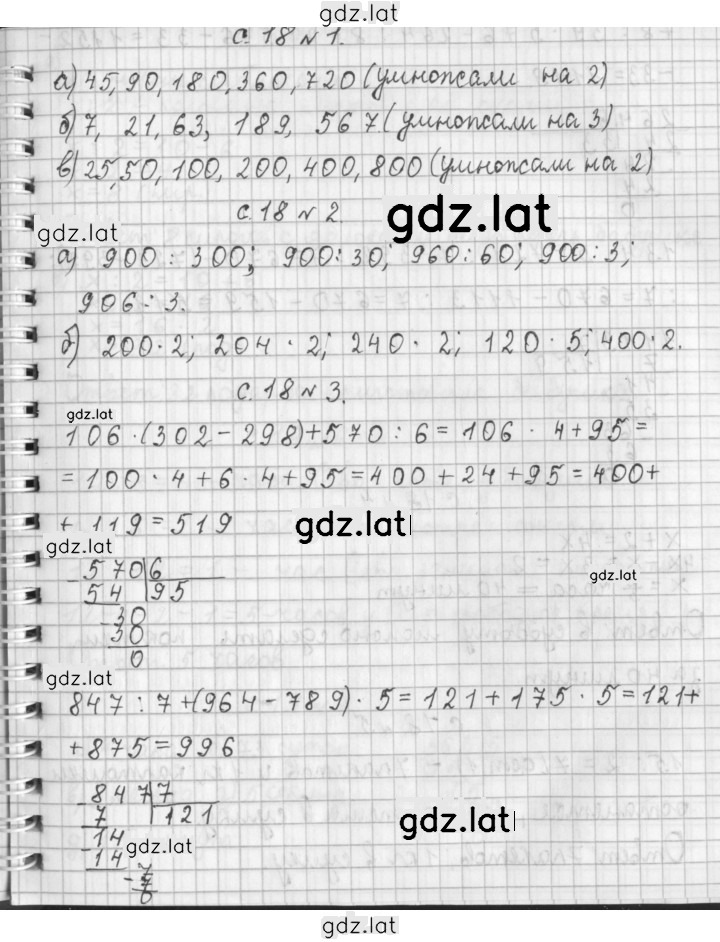 gdz.lat
с. 18 № 1.
а) 45, 90, 180, 360, 720 (умножали на 2)
б) 7, 21, 63, 189, 567 (умножали на 3)
в) 25, 50, 100, 200, 400, 800 (умножали на 2)
с. 18 № 2.
gdz.lat
gdz.lat
а) 900 : 300; 900 : 30; 960 : 60; 900 : 3;
906 : 3.
б) 200 · 2; 204 · 2; 240 · 2; 120 · 5; 400 · 2.
с. 18 № 3.
gdz.lat
106 · (302 - 298) + 570 : 6 = 106 · 4 + 95 =
= 100 · 4 + 6 · 4 + 95 = 400 + 24 + 95 = 400 +
+ 119 = 519
gdz.lat
gdz.lat
- 570 | 6
54 | 95
gdz.lat
- 30
30
0
gdz.lat
847 : 7 + (964 - 789) · 5 = 121 + 175 · 5 = 121 +
+ 875 = 996
- 847 | 7
7 | 121
gdz.lat
- 14
14
gdz.lat
- 7
7
0
gdz.lat